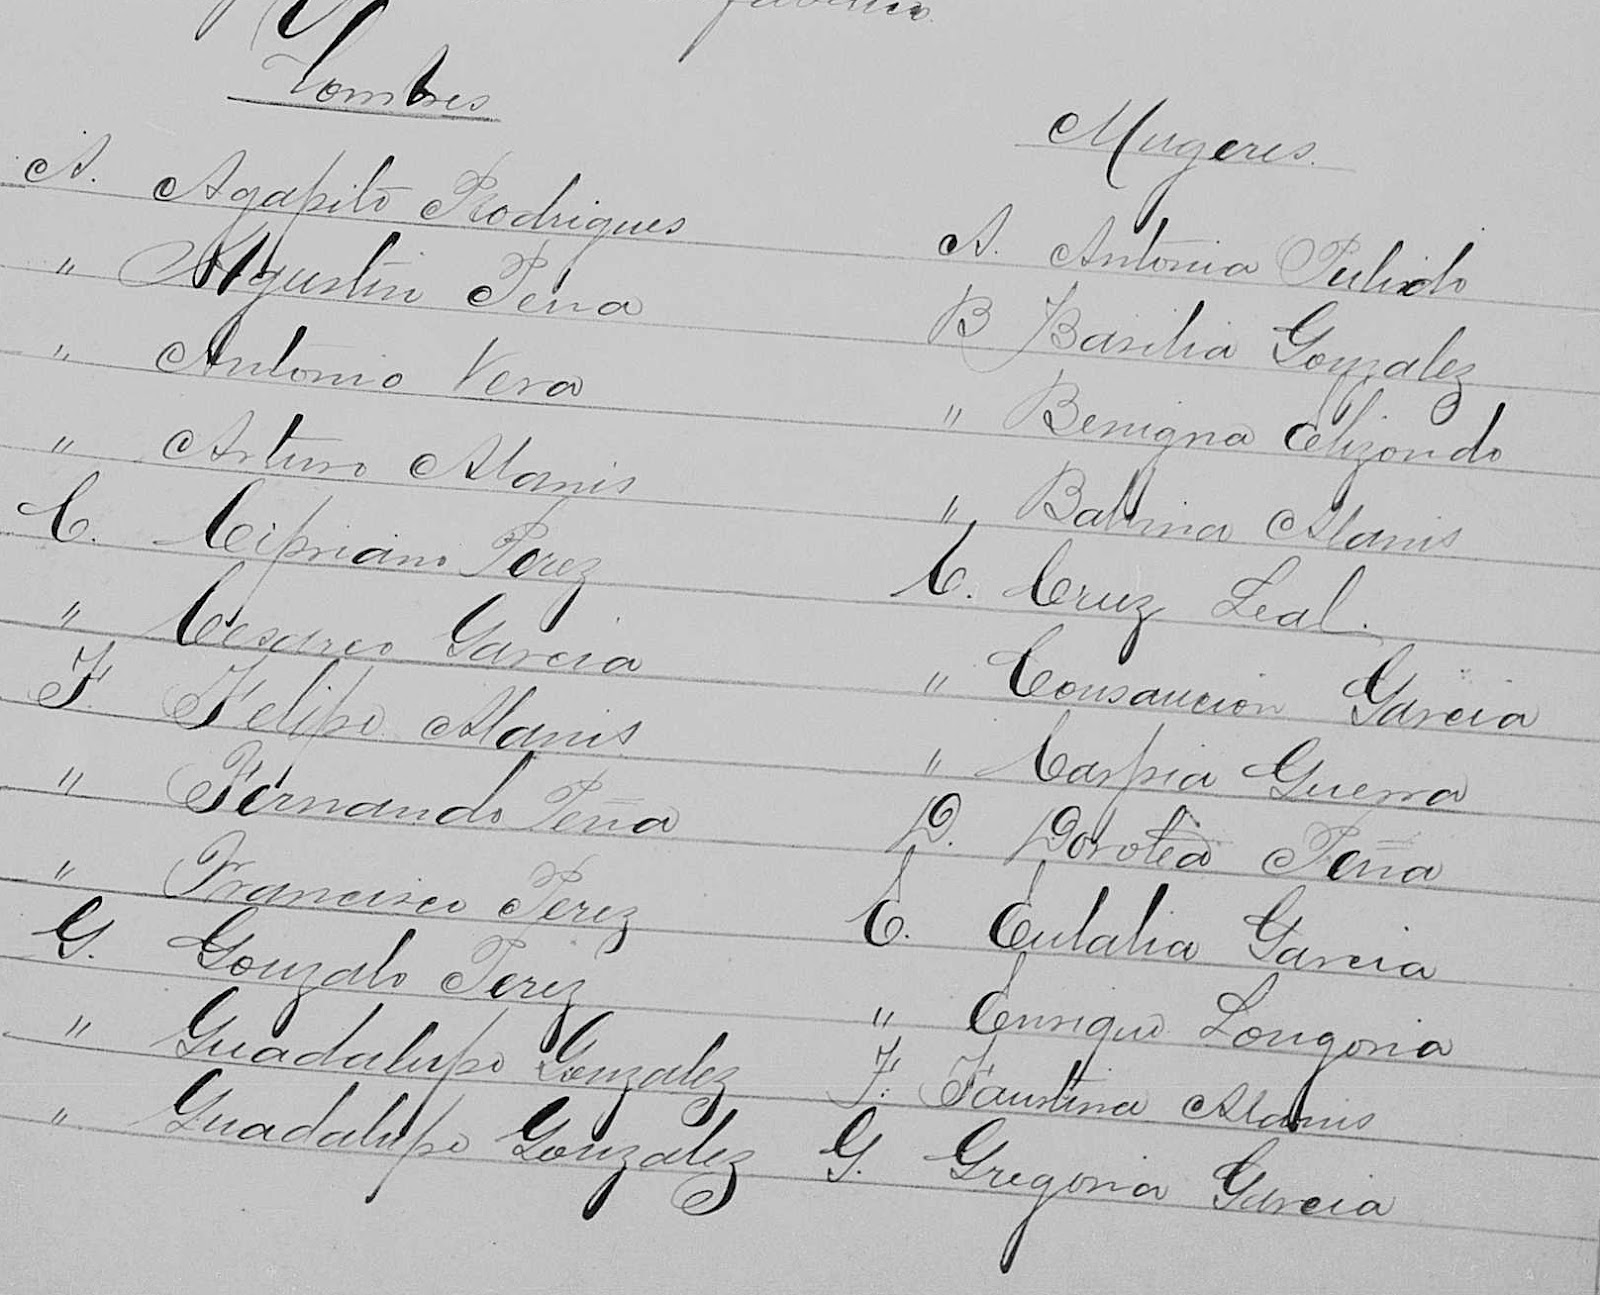 Hombres
A. Agapito Rodrigues
" Agustin Pena
" Antonio Vera
" Arturo Alanis
C. Cipriano Perez
" Cesareo Garcia
F. Felipe Alanis
" Fernando Peña
" Francisco Perez
G. Gonzalo Perez
" Guadalupe Gonzalez
" Guadalupe Gonzalez
Mugeres.
A. Antonia Pulido
B Basilia Gonzalez
" Benigna Elizondo
" Alanis
C. Cruz Leal.
" Garcia
" Guerra
D. Dorotea Peña
E. Eulalia Garcia
" Longoria
F. Faustina Alanis
G. Gregoria Garcia